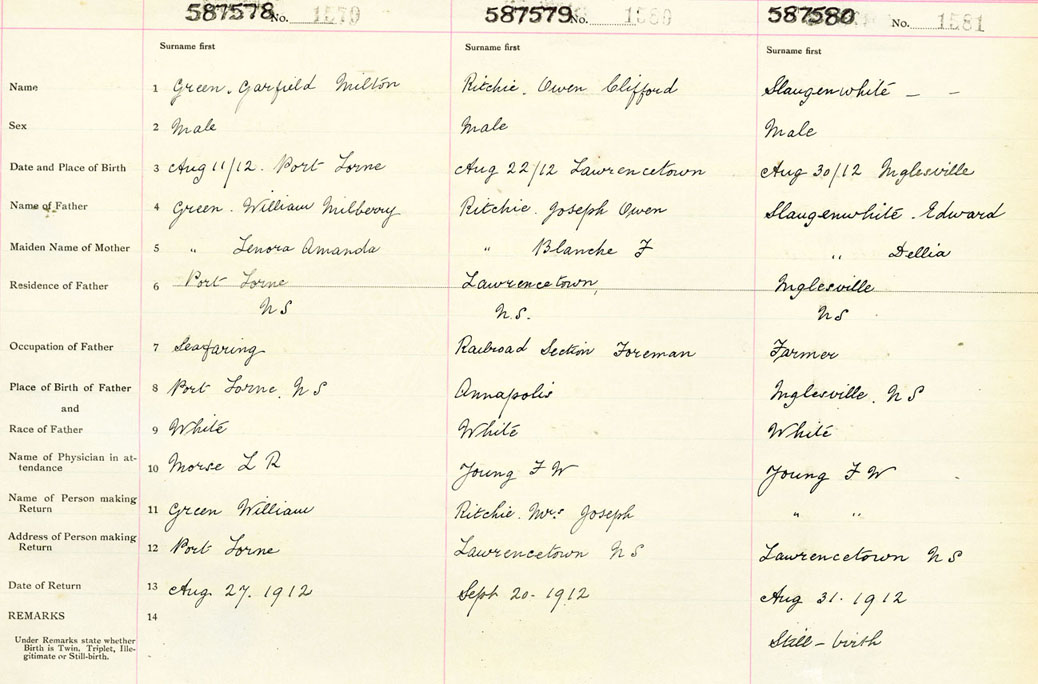 587578 No. 1579 587579 No. 1580 587580 No. 1581
Surname first Surname first Surname first
Name 1 Green. Garfield Milton Ritchie. Owen Clifford Slaugenwhite – –
Sex 2 Male Male Male
Date and Place of Birth 3 Aug 11/12. Port Lorne Aug 22/12 Lawrencetown Aug 30/12 Inglesville
Name of Father 4 Green. William Milberry Ritchie. Joseph Owen Slaugenwhite. Edward
Maiden Name of Mother 5 " Lenora Amanda " Blanche F " Dellia
Residence of Father 6 Port Lorne Lawrencetown, Inglesville
NS N.S. NS
Occupation of Father 7 Seafaring Railroad Section Foreman Farmer
Place of Birth of Father 8 Port Lorne. NS Annapolis Inglesville. NS
and
Race of Father 9 White White White
Name of Physician in at-
tendance 10 Morse L R Young F W Young F W
Name of Person making
Return 11 Green William Ritchie. Mrs Joseph " "
Address of Person making
Return 12 Port Lorne Lawrencetown NS Lawrencetown NS
Date of Return 13 Aug 27. 1912 Sept 20-1912 Aug 31. 1912
REMARKS 14
Under Remarks state whether
Birth is Twin, Triplet, Ille-
gitimate or Still-birth.
Still-birth